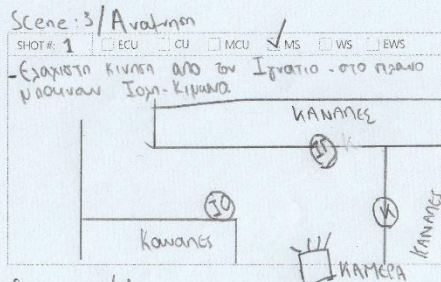 Scene: 3/
SHOT #: 1 ECU CU MCU MS WS EWS
-Ελαχιστη κινηση από τον Ιγνατιο - στο πλανο
μπαινουν Ιολη - Κιμωνα
ΚΑΝΑΠΕΣ
ΙΓ Κ
ΙΟ
Κ
Καναπες
ΚΑΝΑΠΕΣ
ΚΑΜΕΡΑ